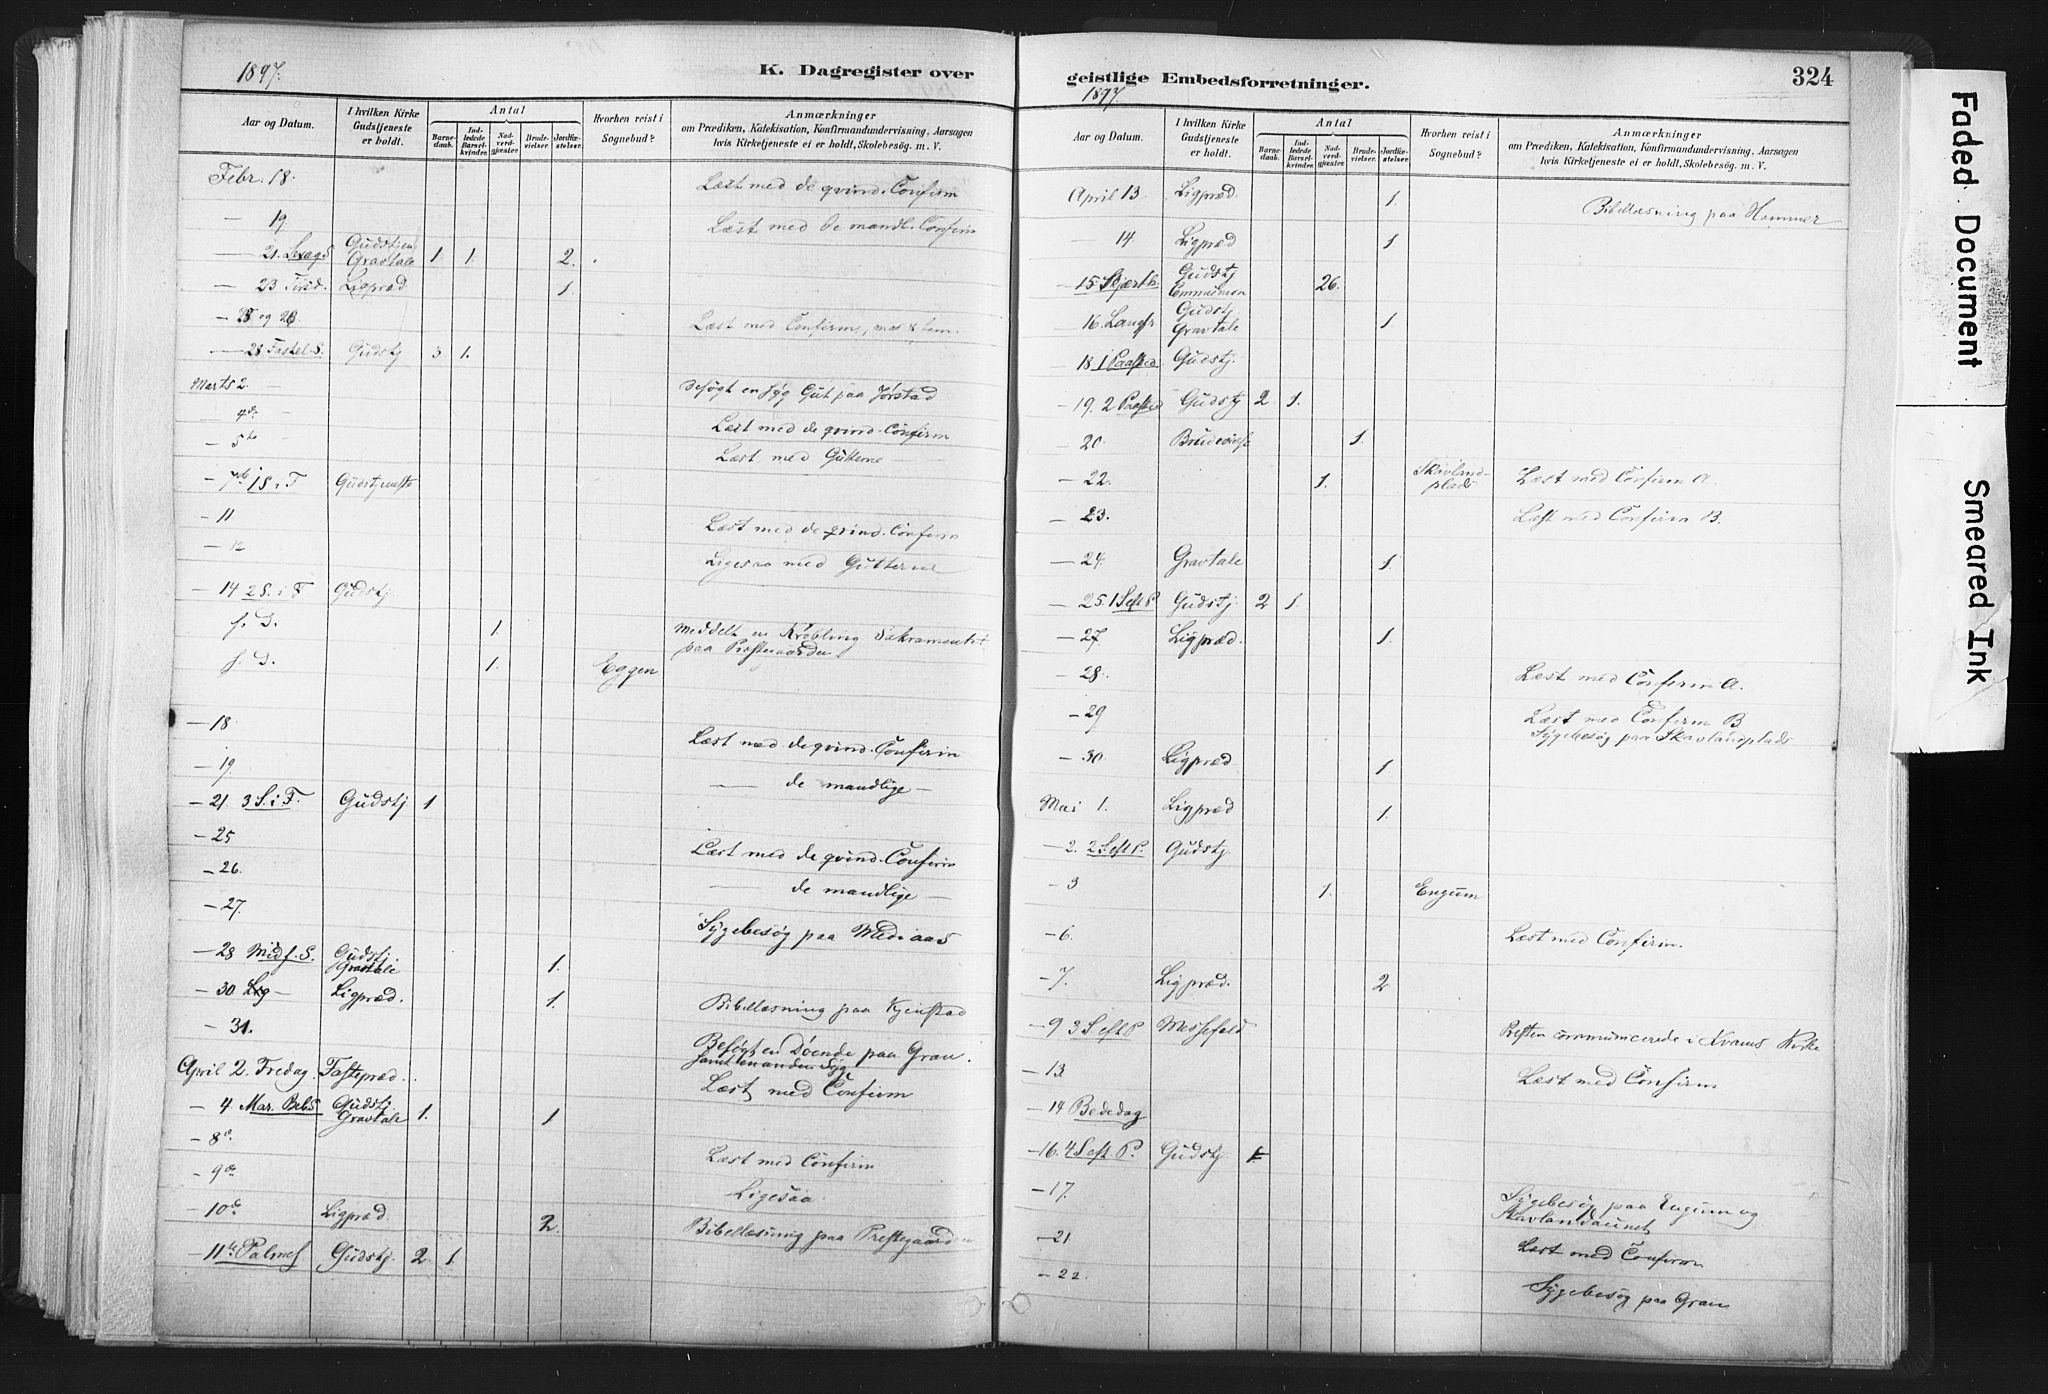 1897.
K. Dagregister over
Aar og Datum.
I hvilken Kirke Gudstjeneste er holdt.
Antal
Barnedaab.
Indledede Barselkvinder.
Nadverdgjester.
Brudevielser.
Jordfæstelser.
Hvorhen reist i Sognebud?
Anmærkninger
om Prædiken, Katekisation, Konfirmandundervisning, Aarsagen
hvis Kirketjeneste ei er holdt, Skolebesøg. m. V.
Febr. 18. Læst med de qvind. Confirm
— 19 Læst med de mandl. Confirm
— 21. Gudstjen Gravtale 1 1. 2.
— 23 Tirsd. Ligpræd 1.
— 25 og 26 Læst med Confirm, mas & fem.
— 28 Fastel. S. Gudstj 3 1.
Marts 2. — Besøgt en syg Gut paa Jørstad
— 4de — Læst med de qvind. Confirm
— 5te — Læst med Gutterne
— 7de 1 S. i F Gudstjeneste
— 11 Læst med de qvind. Confirm
— 12 Ligesaa med Gutterne
— 14 2 S. i F Gudstj
s. D. 1. Meddelt en Krøbling Sakramentet
paa Præstegaarden
s. D. 1. Eggen
— 18 Læst med de qvind. Confirm
— 19. — de mandlige —
— 21 3 S. i F. Gudstj 1.
— 25 Læst med de qvind. Confirm
— 26. — de mandlige —
— 27. Sygebesøg paa Mediaas
— 28 Midf. S. Gudstj. Gravtale 1.
— 30 Ligpræd. 1.
— 31. Bibellæsning paa Kjenstad
April 2. Fredag. Fastepræd. Besøgt en Døende paa Gran.
samt en anden Syg
Læst med Confirm
— 4 Mar. Beb S Gudstj Gravtale 1. 1
— 8de
— 9de Læst med Confirm
Ligesaa.
— 10de Ligpræd. 2. Bibellæsning paa Prestegaarden
— 11te Palmes Gudstj. 2 1.
geistlige Embedsforretninger.
324
1897.
Aar og Datum.
I hvilken Kirke Gudstjeneste er holdt.
Antal
Barnedaab.
Indledede Barselkvinder.
Nadverdgjester.
Brudevielser.
Jordfæstelser.
Hvorhen reist i Sognebud?
Anmærkninger
om Prædiken, Katekisation, Konfirmandundervisning, Aarsagen
hvis Kirketjeneste ei er holdt, Skolebesøg. m. V.
April 13 Ligpræd. 1. Bibellæsning paa Hammer
— 14 Ligpræd 1
— 15 Skjærth. Gudstj Communion 26.
— 16. Langfr Gudstj Gravtale 1
18 1 Paaskd. Gudstj.
— 19. 2 Paaskd Gudstj 2 1.
— 20 Brudevielse 1.
— 22. 1. Skavlandplads Læst med Confirm A.
— 23. Læst med Confirm B.
— 24. Gravtale 1.
— 25. 1 S eft P Gudstj. 2 1.
— 27. Ligpræd. 1.
— 28. Læst med Confirm A.
— 29 Læst med Confirm B
Sygebesøg paa Skavlandplads
— 30 Ligpræd. 1
Mai 1. Ligpræd 1.
— 2. 2 S eft P. Gudstj.
— 3 1. Engum
— 6. Læst med Confirm.
— 7. Ligpræd. 2
— 9 3 S eft P Messefald Presten communicerede i Kvams Kirke
— 13. Læst med Confirm
— 14 Bededag
— 16. 4 S eft P. Gudstj 1.
— 17. Sygebesøg paa Engum og
Skavlandaunet
— 21 Læst med Confirm
— 22. Sygebesøg paa Gran
Faded Document
Smeared Ink